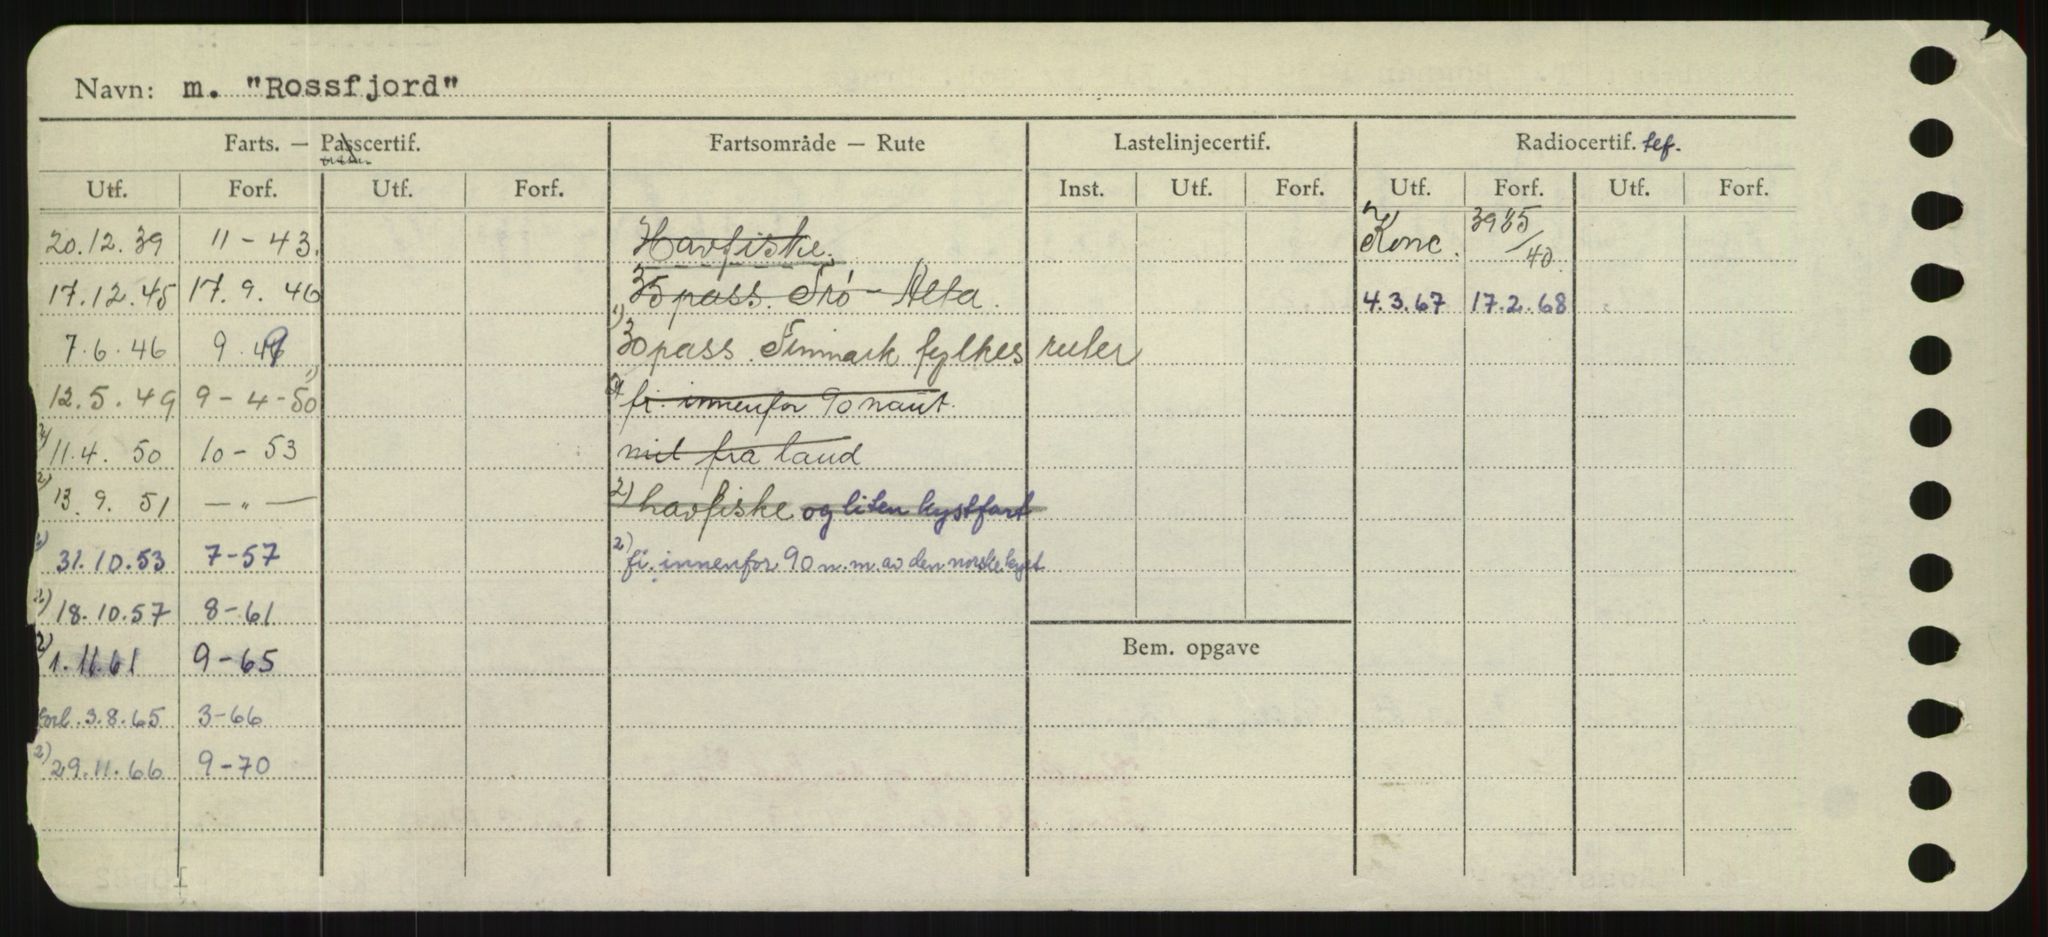 Navn: m. "Rossfjord"
Farts. — Passcertif. Fartsområde — Rute Lastelinjecertif. Radiocertif. tef.
Utf. Forf. Utf. Forf. Inst. Utf. Forf. Utf. Forf. Utf. Forf.
20.12.39 11 - 43. Havfiske. Konc. 3985/40
17.12.45 17.9.46 35 pass. Trö - Alta. 4.3.67 17.2.68
7.6.46 9.49 1) 30 pass. Finmark fylkes ruter
12.5.49 9-4-50 1) fi. innenfor 90 naut.
2) 11.4.50 10-53 mil fra land
2) 13.9.51 — " — 2) havfiske og liten kystfart
2) 31.10.53 7-57 2) fi. innenfor 90 n.m. av den norske kyst
2) 18.10.57 8-61
2) 1.11.61 9-65 Bem. opgave
Forl. 3.8.65 3-66
2) 29.11.66 9-70